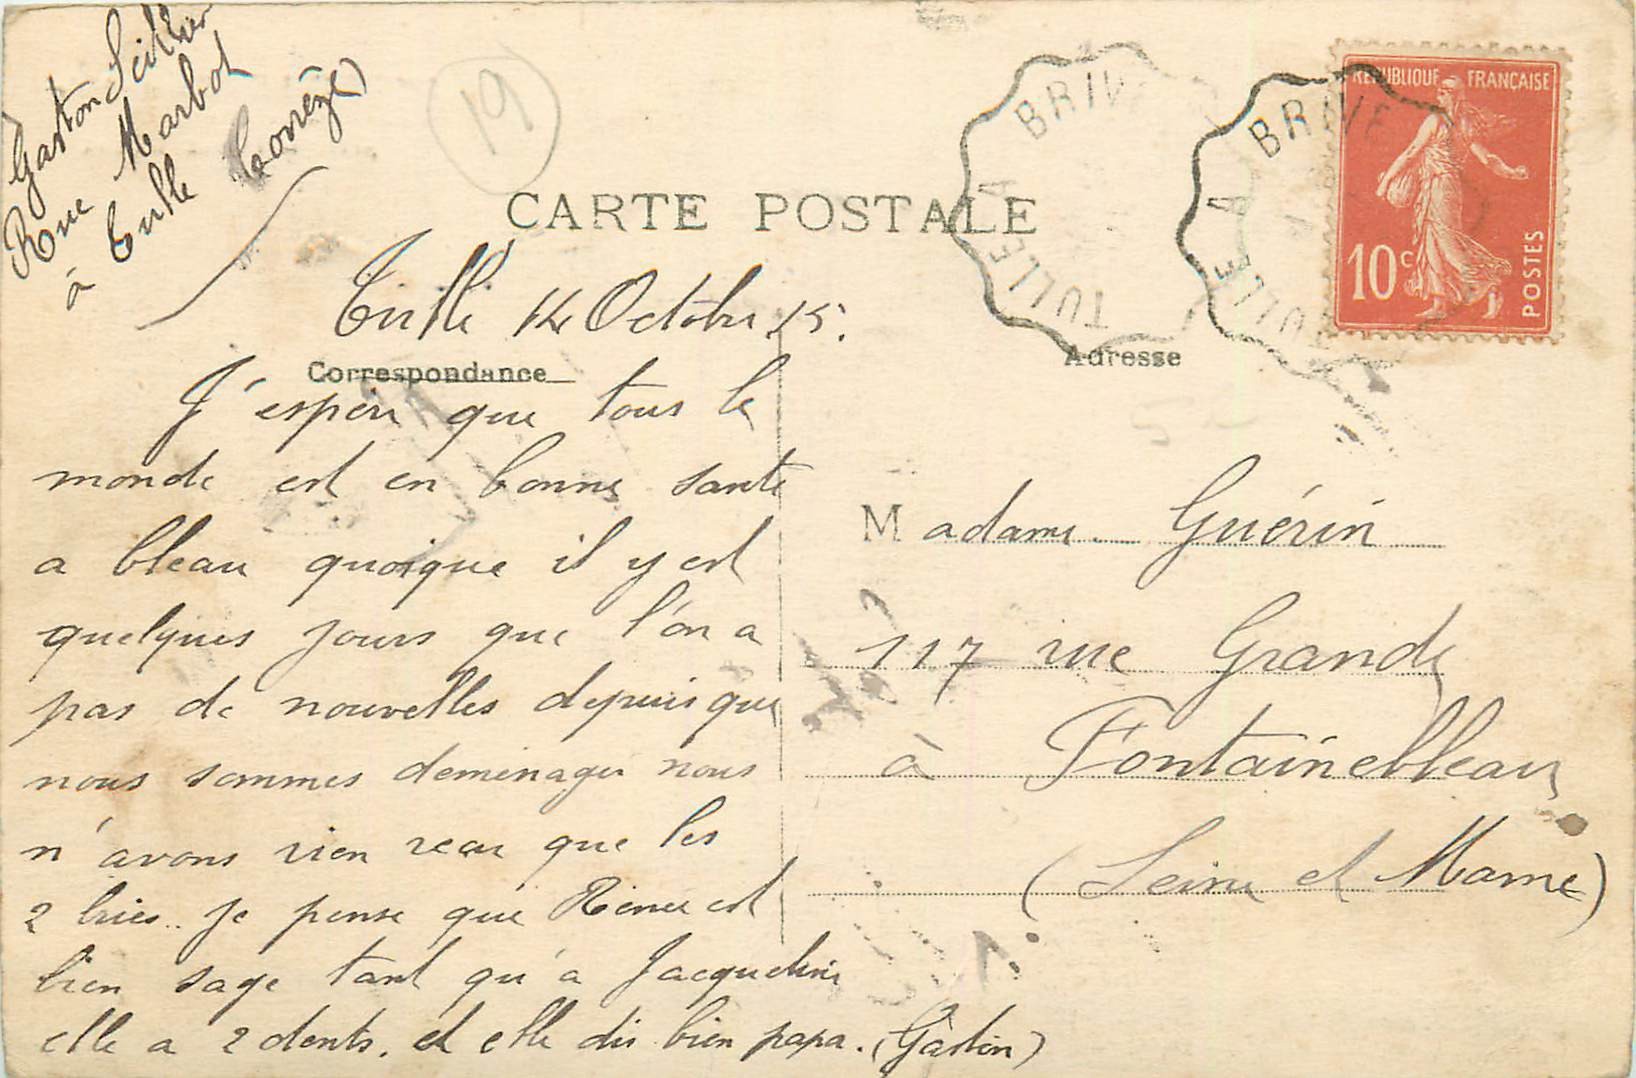 Gaston
Rue Marbot
à Tulle (Corrèze)
19
CARTE POSTALE
BRIVE A TULLE
BRIVE A TULLE
REPUBLIQUE FRANÇAISE
10c
POSTES
Tulle 14 Octobre 15.
Correspondance
Adresse
J'espère que tous le
monde est en bonne santé
a bleau quoique il y est
quelques jours que l'on a
pas de nouvelles depuis que
nous sommes demenager nous
n'avons rien recu que les
2 bries.. je pense que Renée est
bien sage tant qu'a Jacqueline
elle a 2 dents. et elle dis bien papa. (Gaston)
Madame Guérin
117 rue Grande
à Fontainebleau
(Seine et Marne)